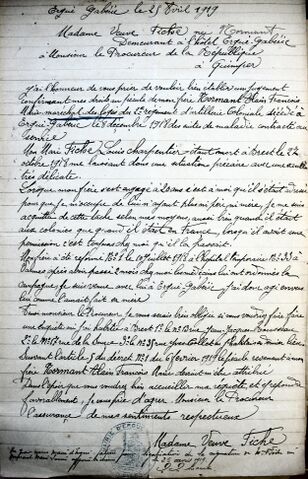 Ergué Gabéric le 25 avril 1919
Madame Veuve Fiche née Normant
Demeurant à l'hôtel Ergué-Gabéric
à Monsieur le Procureur de la République
à Quimper
J'ai l'honneur de vous prier de vouloir bien établir un jugement
confirmant mes droits au pécule de mon frère Normant Alain François
Marie, maréchal des logis du 2e régiment d'artillerie Coloniale décédé à
Ergué Gabéric le 8 décembre 1918 des suites de maladie contractée au
service
Mon Mari Fiche Louis Charpentier étant mort à Brest le 27
octobre 1918 me laissant dans une situation précaire avec une santé
très délicate.
Lorsque mon frère s'est engagé à 20 ans c'est à moi qu'il s'était adressé
pour que je m'occupe de lui n'ayant plus ni père ni mère, je me suis
acquittée de cette tâche selon mes moyens aussi bien quand il était
aux colonies que quand il était en France, lorsqu'il avait une
permission c'est toujours chez moi qu'il la passait.
Mon frère a été réformé le 10 juillet 1918 à l'hôpital temporaire à
Vannes après avoir passé 2 mois chez moi les médecins lui ont ordonné la
campagne je suis venue avec lui à Ergué-Gabéric j'ai donc agi envers
lui comme l'aurait fait sa mère
Aussi monsieur le Procureur je vous serais bien obligée si vous vouliez faire
une enquête où j'ai habité à Brest rue Jean-Jacques Rousseau
Suivant l'article 5 du décret du 6 février 1919 le pécule revenant à mon
frère Normant Alain François Marie devrait m'être attribué
Dans l'espoir que vous voudrez bien accueillir ma requête et y répondre
favorablement, je vous prie d'agréer Monsieur le Procureur
l'assurance de mes sentiments respectueux
Madame Veuve Fiche